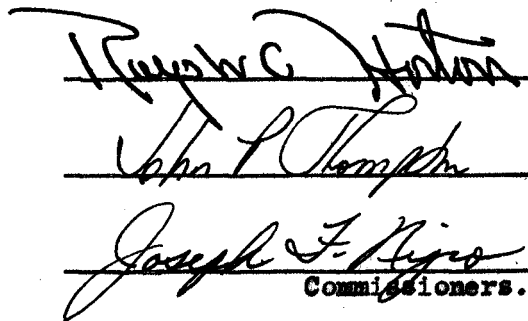 Horton
John P Thompson
Joseph F. Nigro
Commissioners.